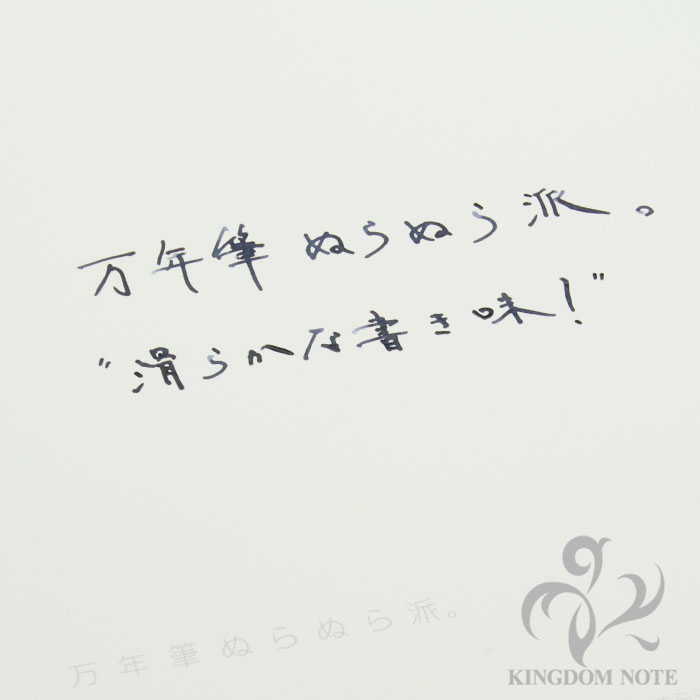 万年筆 ぬらぬら派。
"滑らかな書き味!"
万年筆ぬらぬら派。
KINGDOM NOTE